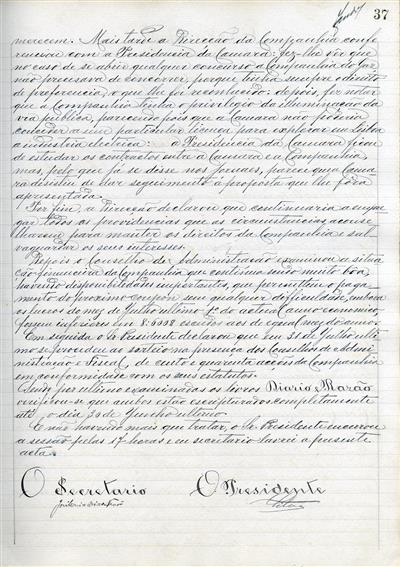 37
merecem. Mais tarde a Direcção da Companhia confe-
renciou com a Presidencia da Camara: fez-lhe ver que
no caso de se abrir qualquer concurso a Companhia do Gaz
não precisava de concorrer, porque tinha sempre o direito
de preferencia, o que lhe foi reconhecido: depois, fez notar
que a Companhia tinha o privilegio da illuminação da
via publica, parecendo pois que a Camara não poderia
conceder a um particular licença para explorar em Lisboa
a industria electrica: a Presidencia da Camara ficou
de estudar os contractos entre a Camara e a Companhia,
mas, pelo que já se disse nos jornaes, parece que a Cama-
ra desistiu de dar seguimento á proposta que lhe fôra
apresentada.
Por fim, a Direcção declarou que continuaria a empre-
gar todas as providencias que as circunstancias aconse-
lhassem para manter os direitos da Companhia e sal-
vaguardar os seus interesses.
Depois o Conselho de Administração examinou a situa-
ção financeira da Companhia que continua sendo muito boa,
havendo disponibilidades importantes, que permittem o paga-
mento do proximo coupon sem qualquer difficuldade, embora
os lucros do mez de Julho ultimo, 1º do actual anno economico,
fossem inferiores em 8:000$ escudos aos de egual mez do anno
Em seguida o Sr. Presidente declarou que em 31 de Julho ulti-
mo se procedeu ao sorteio na presença dos Conselhos de Admi-
nistração e Fiscal, de cento e quarenta acções da Companhia
em conformidade com os seus estatutos.
Sendo por ultimo examinados os livros Diario e Razão
verificou-se que ambos estão escripturados completamente
até o dia 30 de Junho ultimo.
E não havendo mais que tratar, o Sr. Presidente encerrou
a sessão pelas 17 horas e eu secretario lavrei a presente
acta.
O Secretario O Presidente